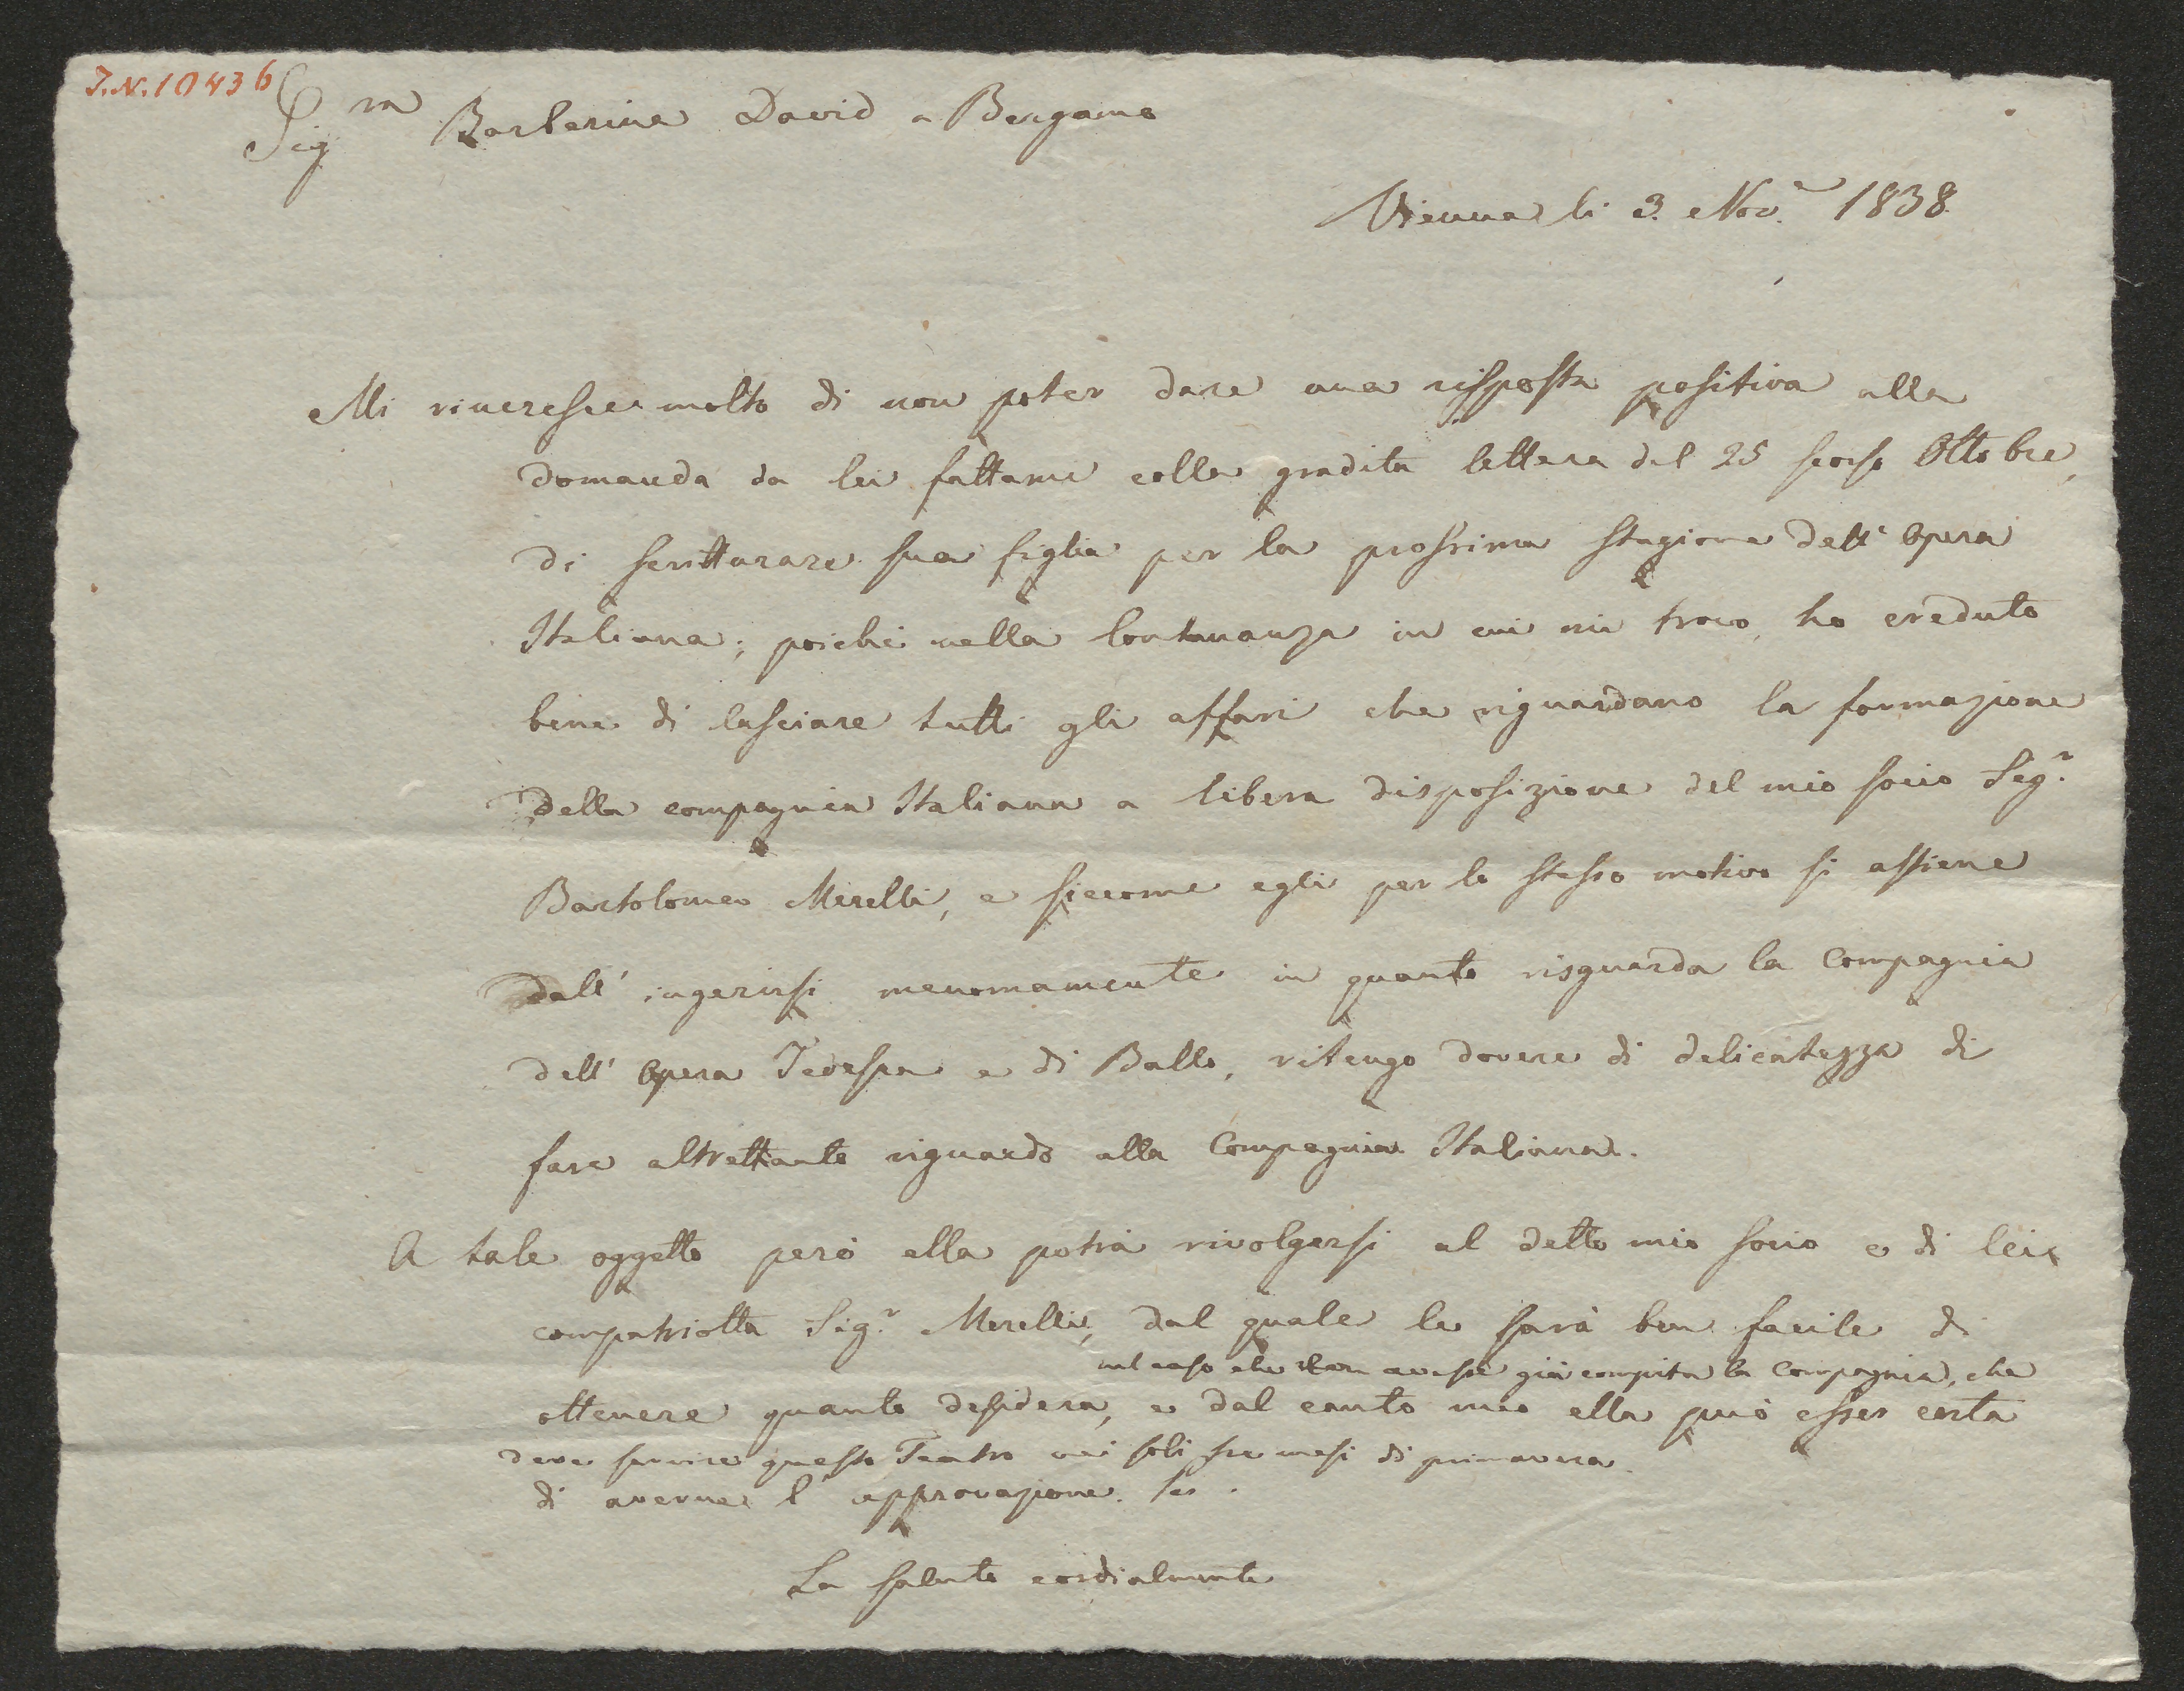 I.N. 10436
Sigra Barberina David a Bergamo
Vienna li 3. Nov.e 1838.
Mi rincresce molto di non poter dare una risposta positiva alla
domanda da lei fattami colla gradita lettera del 25 scorso Ottobre,
di scritturare sua figlia per la prossima stagione dell' Opera
Italiana; poiché nella lontananza in cui mi trovo, ho creduto
bene di lasciare tutti gli affari che riguardano la formazione
della compagnia Italiana a libera disposizione del mio socio Sigr.
Bartolomeo Merelli, e siccome egli per lo stesso motivo si astiene
dall' ingerirsi menomamente in quanto risguarda la Compagnia
dell' Opera Tedesca e di Ballo, ritengo dovere di delicatezza di
fare altrettanto riguardo alla Compagnia Italiana.
A tale oggetto però ella potrà rivolgersi al detto mio socio e di lei
compatriotta Sigr. Merelli, dal quale le sarà ben facile di
nel caso che non avesse già compita la Compagnia, che
ottenere quanto desidera, e dal canto mio ella può esser certa
deve servire questo Teatro nei soli tre mesi di primavera.
di averne l' approvazione.
La saluto cordialmente